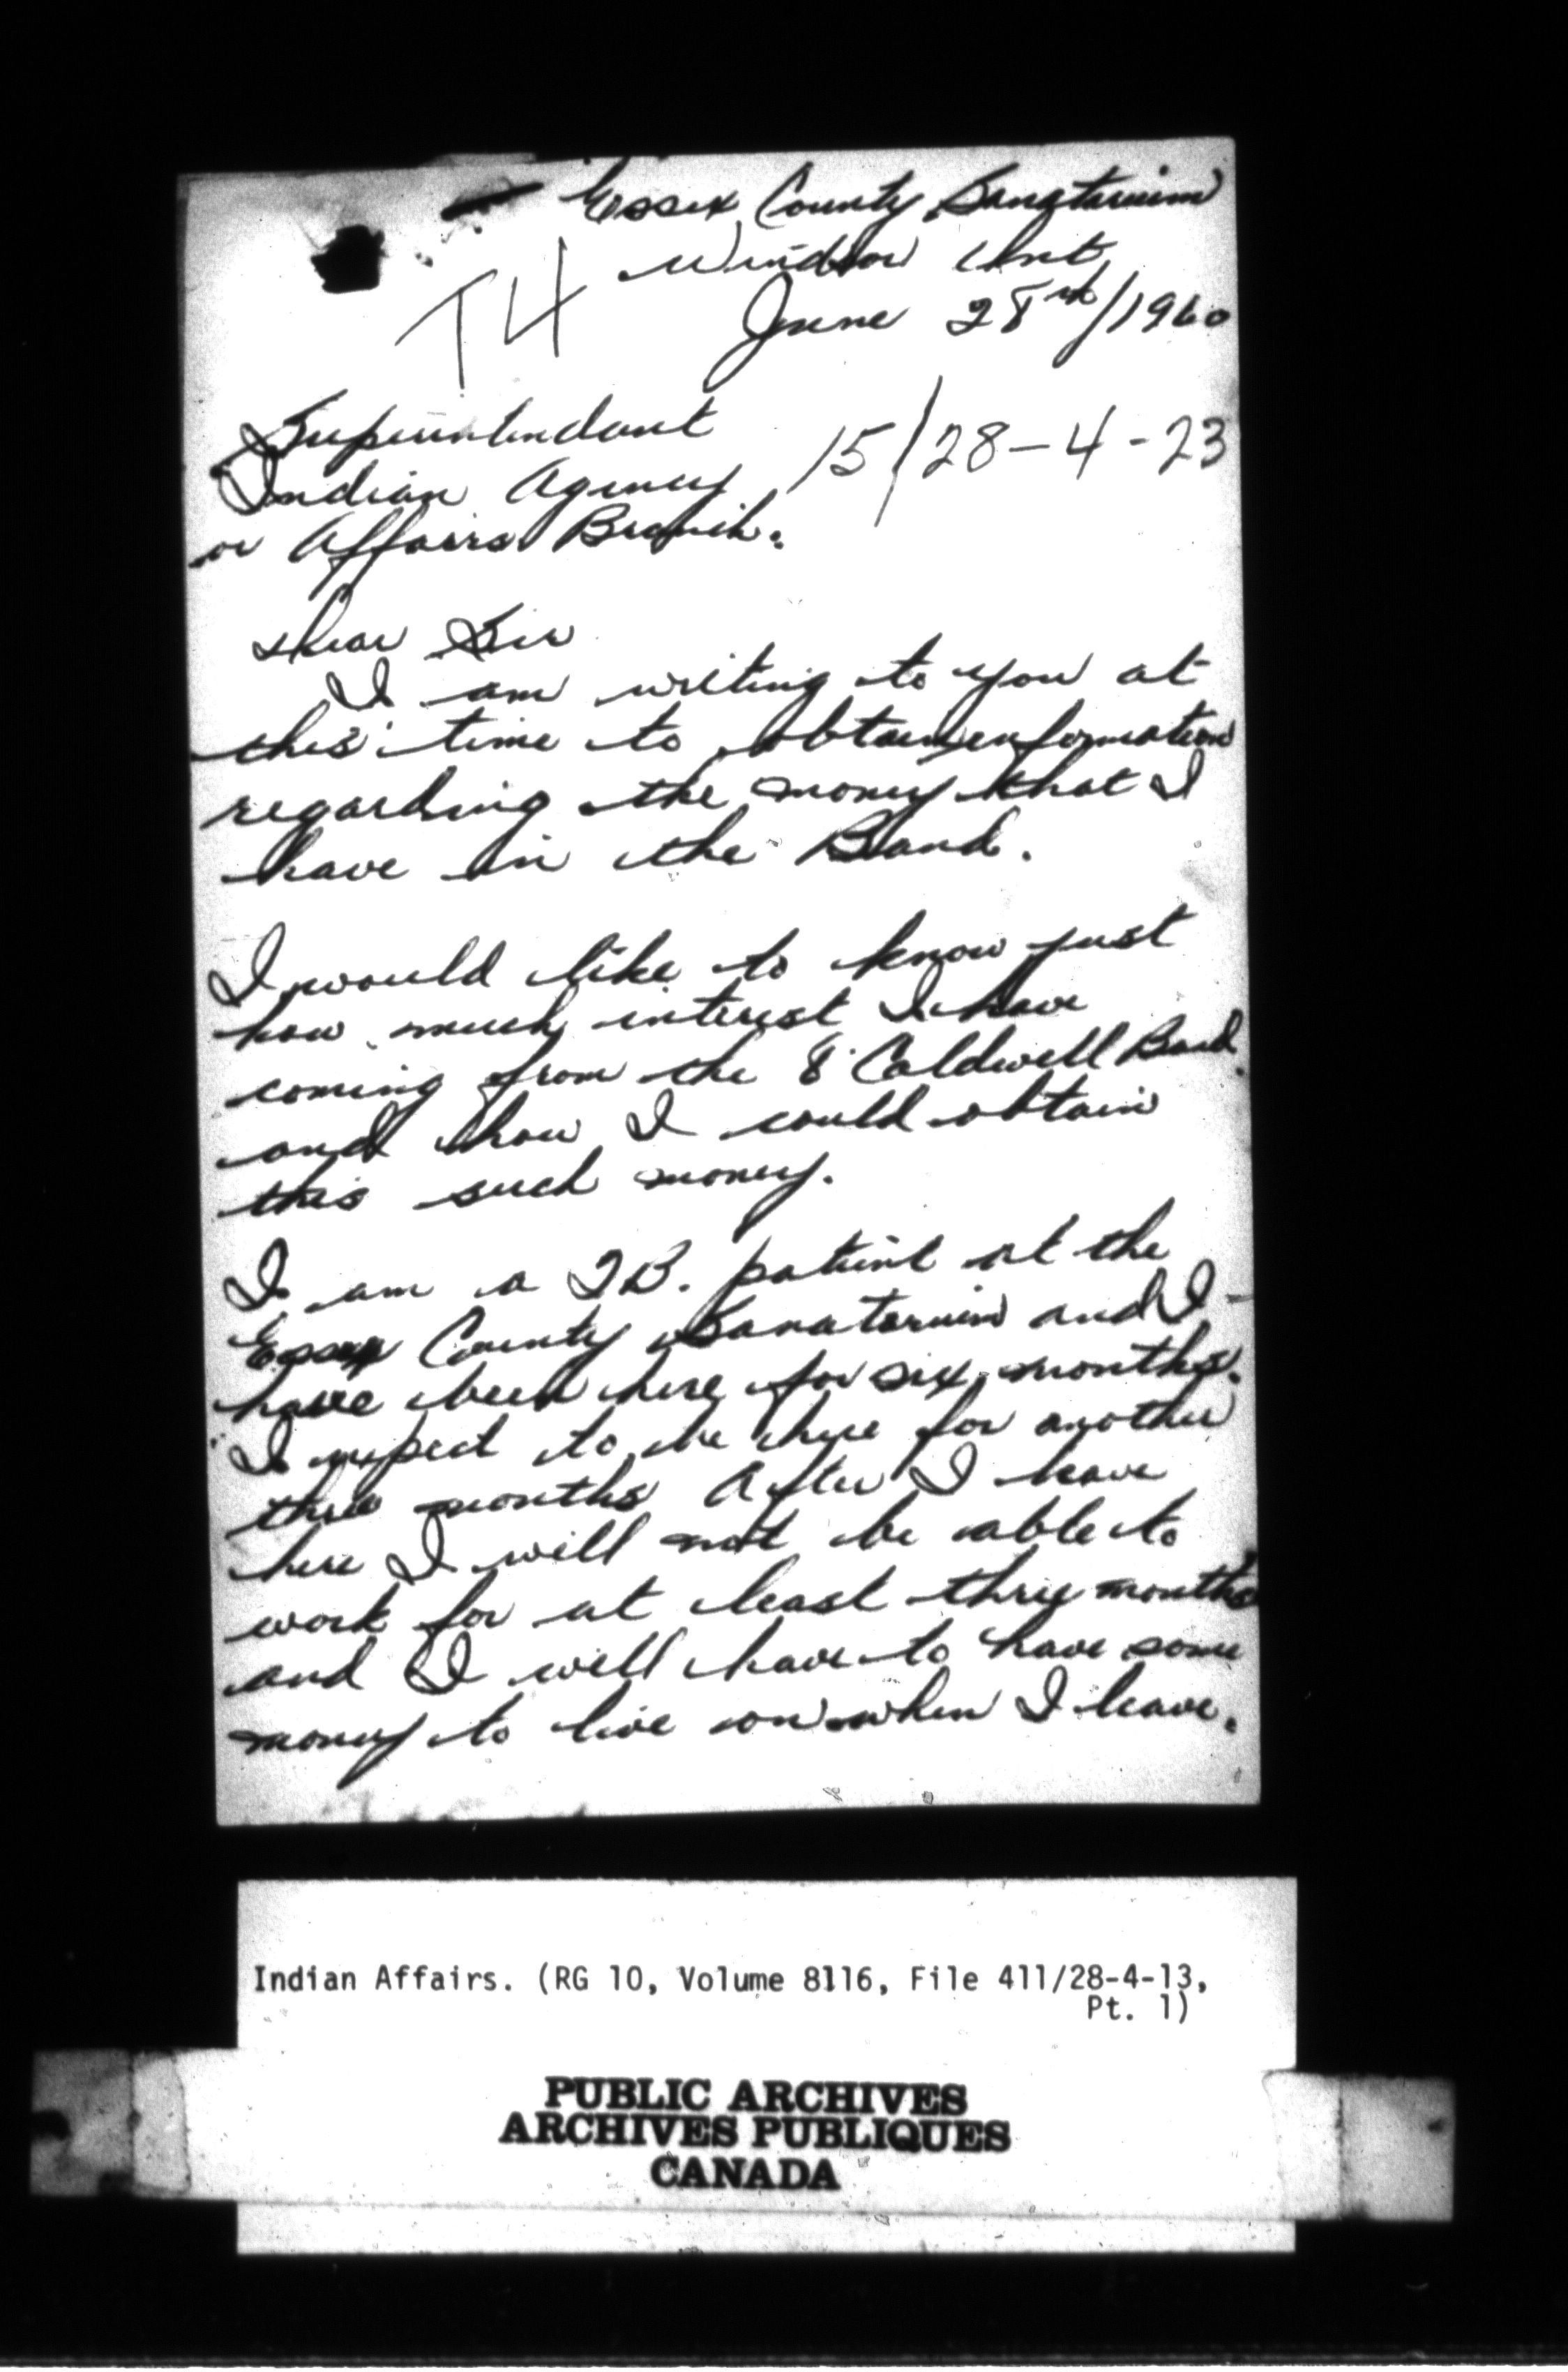 Essex County Sanatarium
Windsor Ont
June 28th/1960
T4
Superintendant
Indian Agency
15/28-4-23
or Affairs Branch.
Dear Sir
I am writing to you at
this time to obtain information
regarding the money that I
have in the Band.
I would like to know just
how much interest I have
coming from the Caldwell Band
and how I could obtain
this such money.
I am a TB. patient at the
Essex County Sanatorium and I
have been here for six months.
I expect to be here for another
three months After I leave
here I will not be able to
work for at least three months
and I will have to have some
money to live on when I leave.
Indian Affairs. (RG 10, Volume 8116, File 411/28-4-13,
Pt. 1)
PUBLIC ARCHIVES
ARCHIVES PUBLIQUES
CANADA